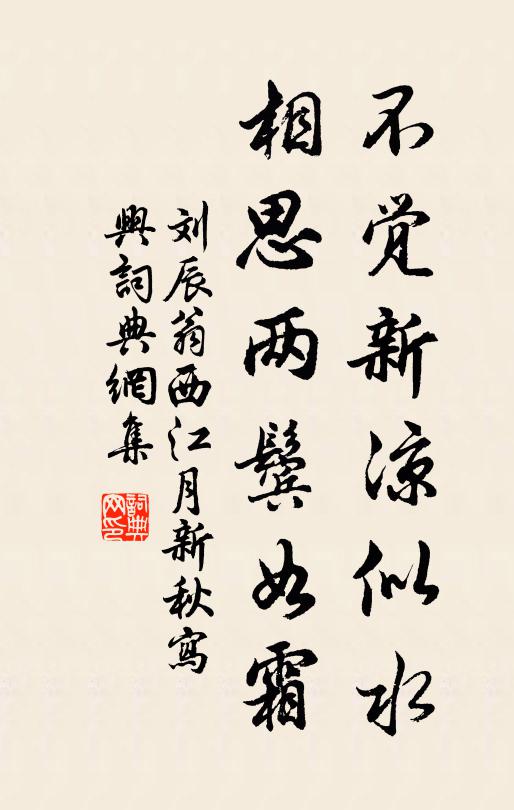 不觉新凉似水
相思两鬓如霜
刘辰翁西江月新秋寫
興詞典網集
詞典網印